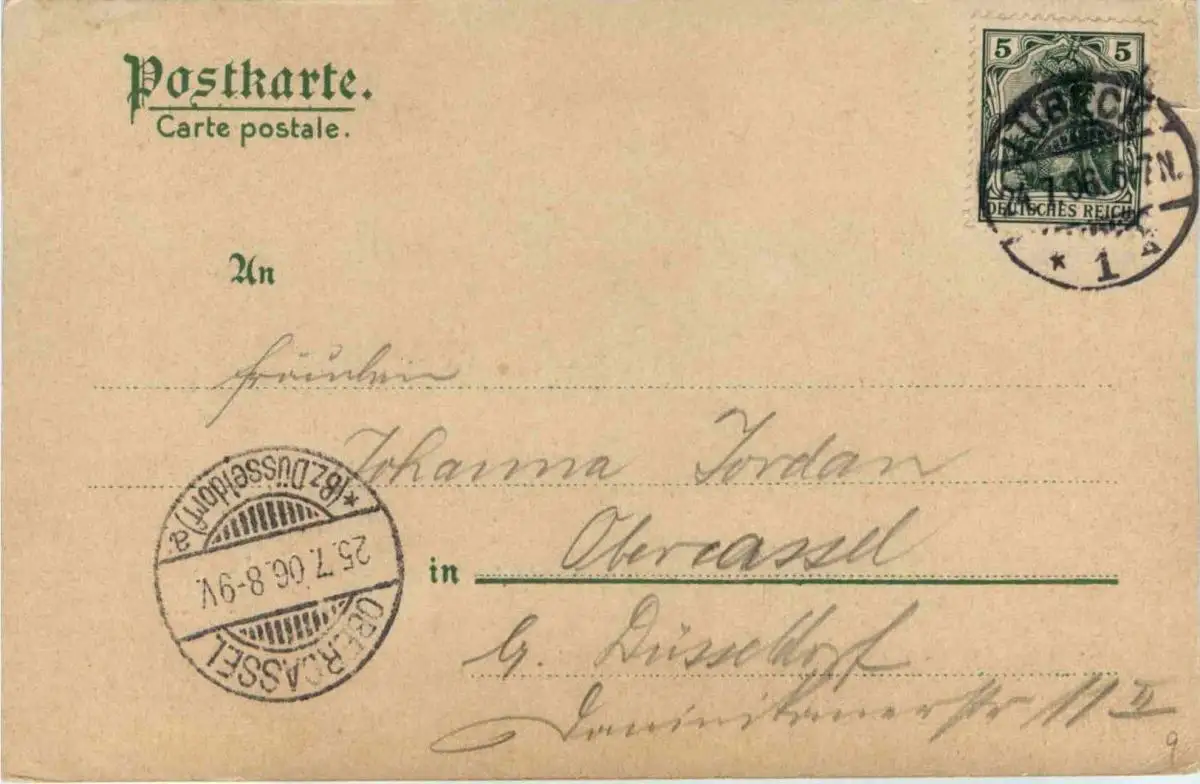 Postkarte.
Carte postale.
5 5
DEUTSCHES REICH
LÜBECK
24.7.06.6-7N.
* 1
An
Fräulein
Johanna Jordan
in Obercassel
b. Düsseldorf
Dominikanerstr 11 II
OBERCASSEL
25.7.06.8-9V.
*(BZ.DÜSSELDORF)a.
9